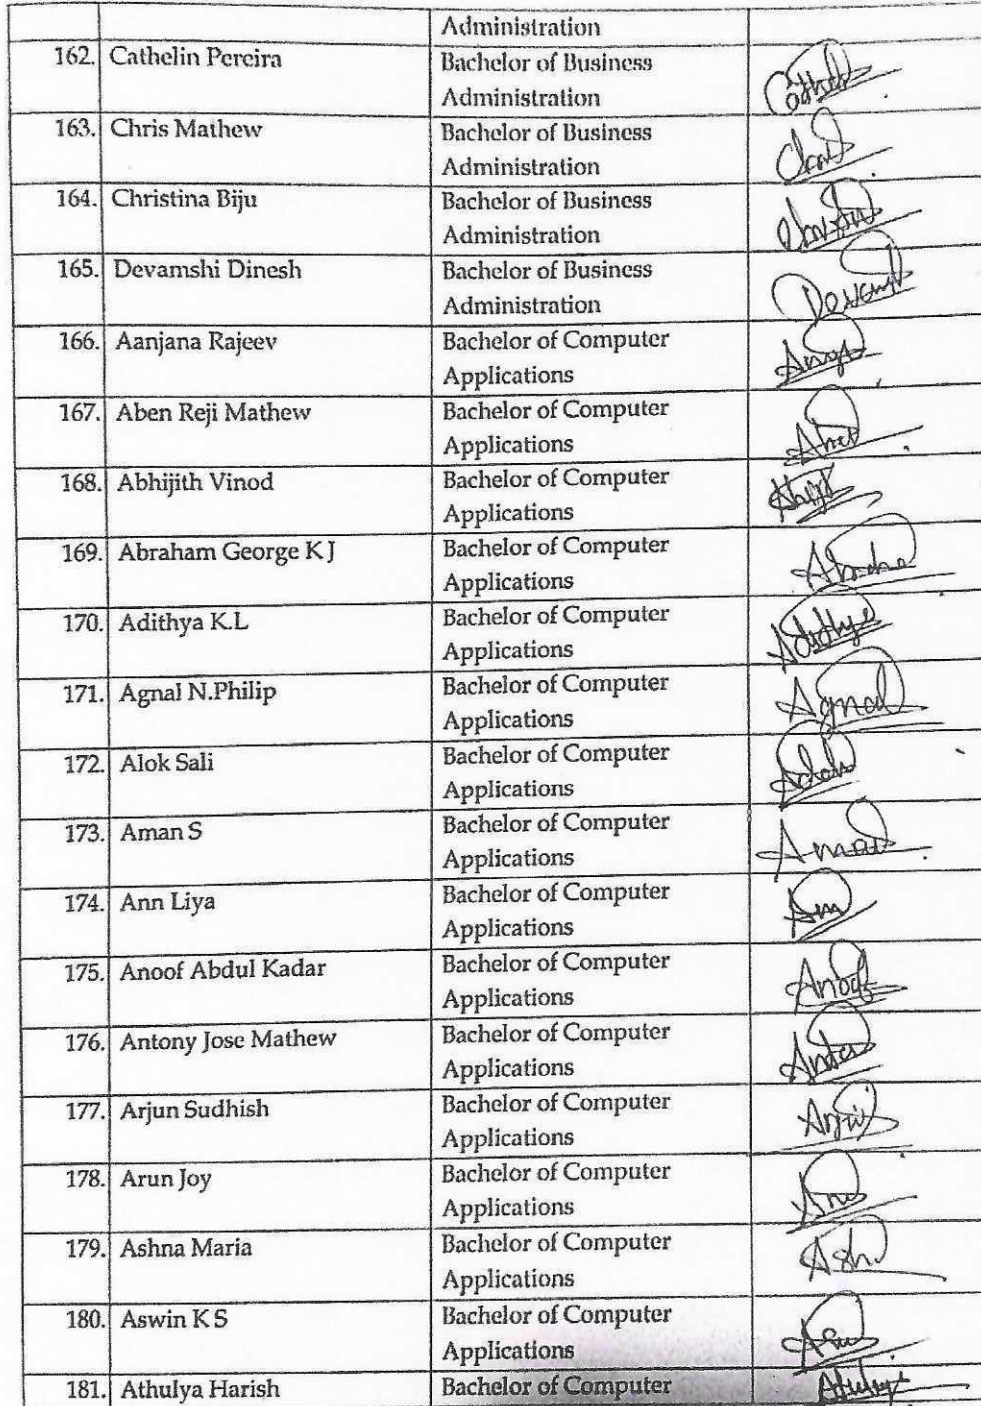 Administration
162. Cathelin Pereira Bachelor of Business
Administration
163. Chris Mathew Bachelor of Business
Administration
164. Christina Biju Bachelor of Business
Administration
165. Devamshi Dinesh Bachelor of Business
Administration
166. Aanjana Rajeev Bachelor of Computer
Applications
167. Aben Reji Mathew Bachelor of Computer
Applications
168. Abhijith Vinod Bachelor of Computer
Applications
169. Abraham George K J Bachelor of Computer
Applications
170. Adithya K.L Bachelor of Computer
Applications
171. Agnal N.Philip Bachelor of Computer
Applications Agnal
172. Alok Sali Bachelor of Computer
Applications
173. Aman S Bachelor of Computer
Applications
174. Ann Liya Bachelor of Computer
Applications
175. Anoof Abdul Kadar Bachelor of Computer
Applications Anoof
176. Antony Jose Mathew Bachelor of Computer
Applications
177. Arjun Sudhish Bachelor of Computer
Applications
178. Arun Joy Bachelor of Computer
Applications
179. Ashna Maria Bachelor of Computer
Applications
180. Aswin K S Bachelor of Computer
Applications
181. Athulya Harish Bachelor of Computer